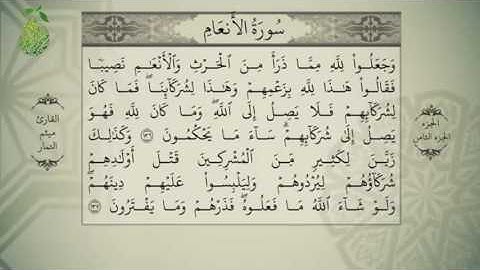 سُورَةُ الأَنْعَامِ
وَجَعَلُوا۟ لِلَّهِ مِمَّا ذَرَأَ مِنَ ٱلْحَرْثِ وَٱلْأَنْعَٰمِ نَصِيبًا
فَقَالُوا۟ هَٰذَا لِلَّهِ بِزَعْمِهِمْ وَهَٰذَا لِشُرَكَآئِنَا ۖ فَمَا كَانَ
لِشُرَكَآئِهِمْ فَلَا يَصِلُ إِلَى ٱللَّهِ ۖ وَمَا كَانَ لِلَّهِ فَهُوَ
يَصِلُ إِلَىٰ شُرَكَآئِهِمْ ۗ سَآءَ مَا يَحْكُمُونَ ١٣٦ وَكَذَٰلِكَ
زَيَّنَ لِكَثِيرٍ مِّنَ ٱلْمُشْرِكِينَ قَتْلَ أَوْلَٰدِهِمْ
شُرَكَآؤُهُمْ لِيُرْدُوهُمْ وَلِيَلْبِسُوا۟ عَلَيْهِمْ دِينَهُمْ ۖ
وَلَوْ شَآءَ ٱللَّهُ مَا فَعَلُوهُ ۖ فَذَرْهُمْ وَمَا يَفْتَرُونَ ١٣٧
الجزء
الجزء الثامن
القارئ
ميثم
التمار